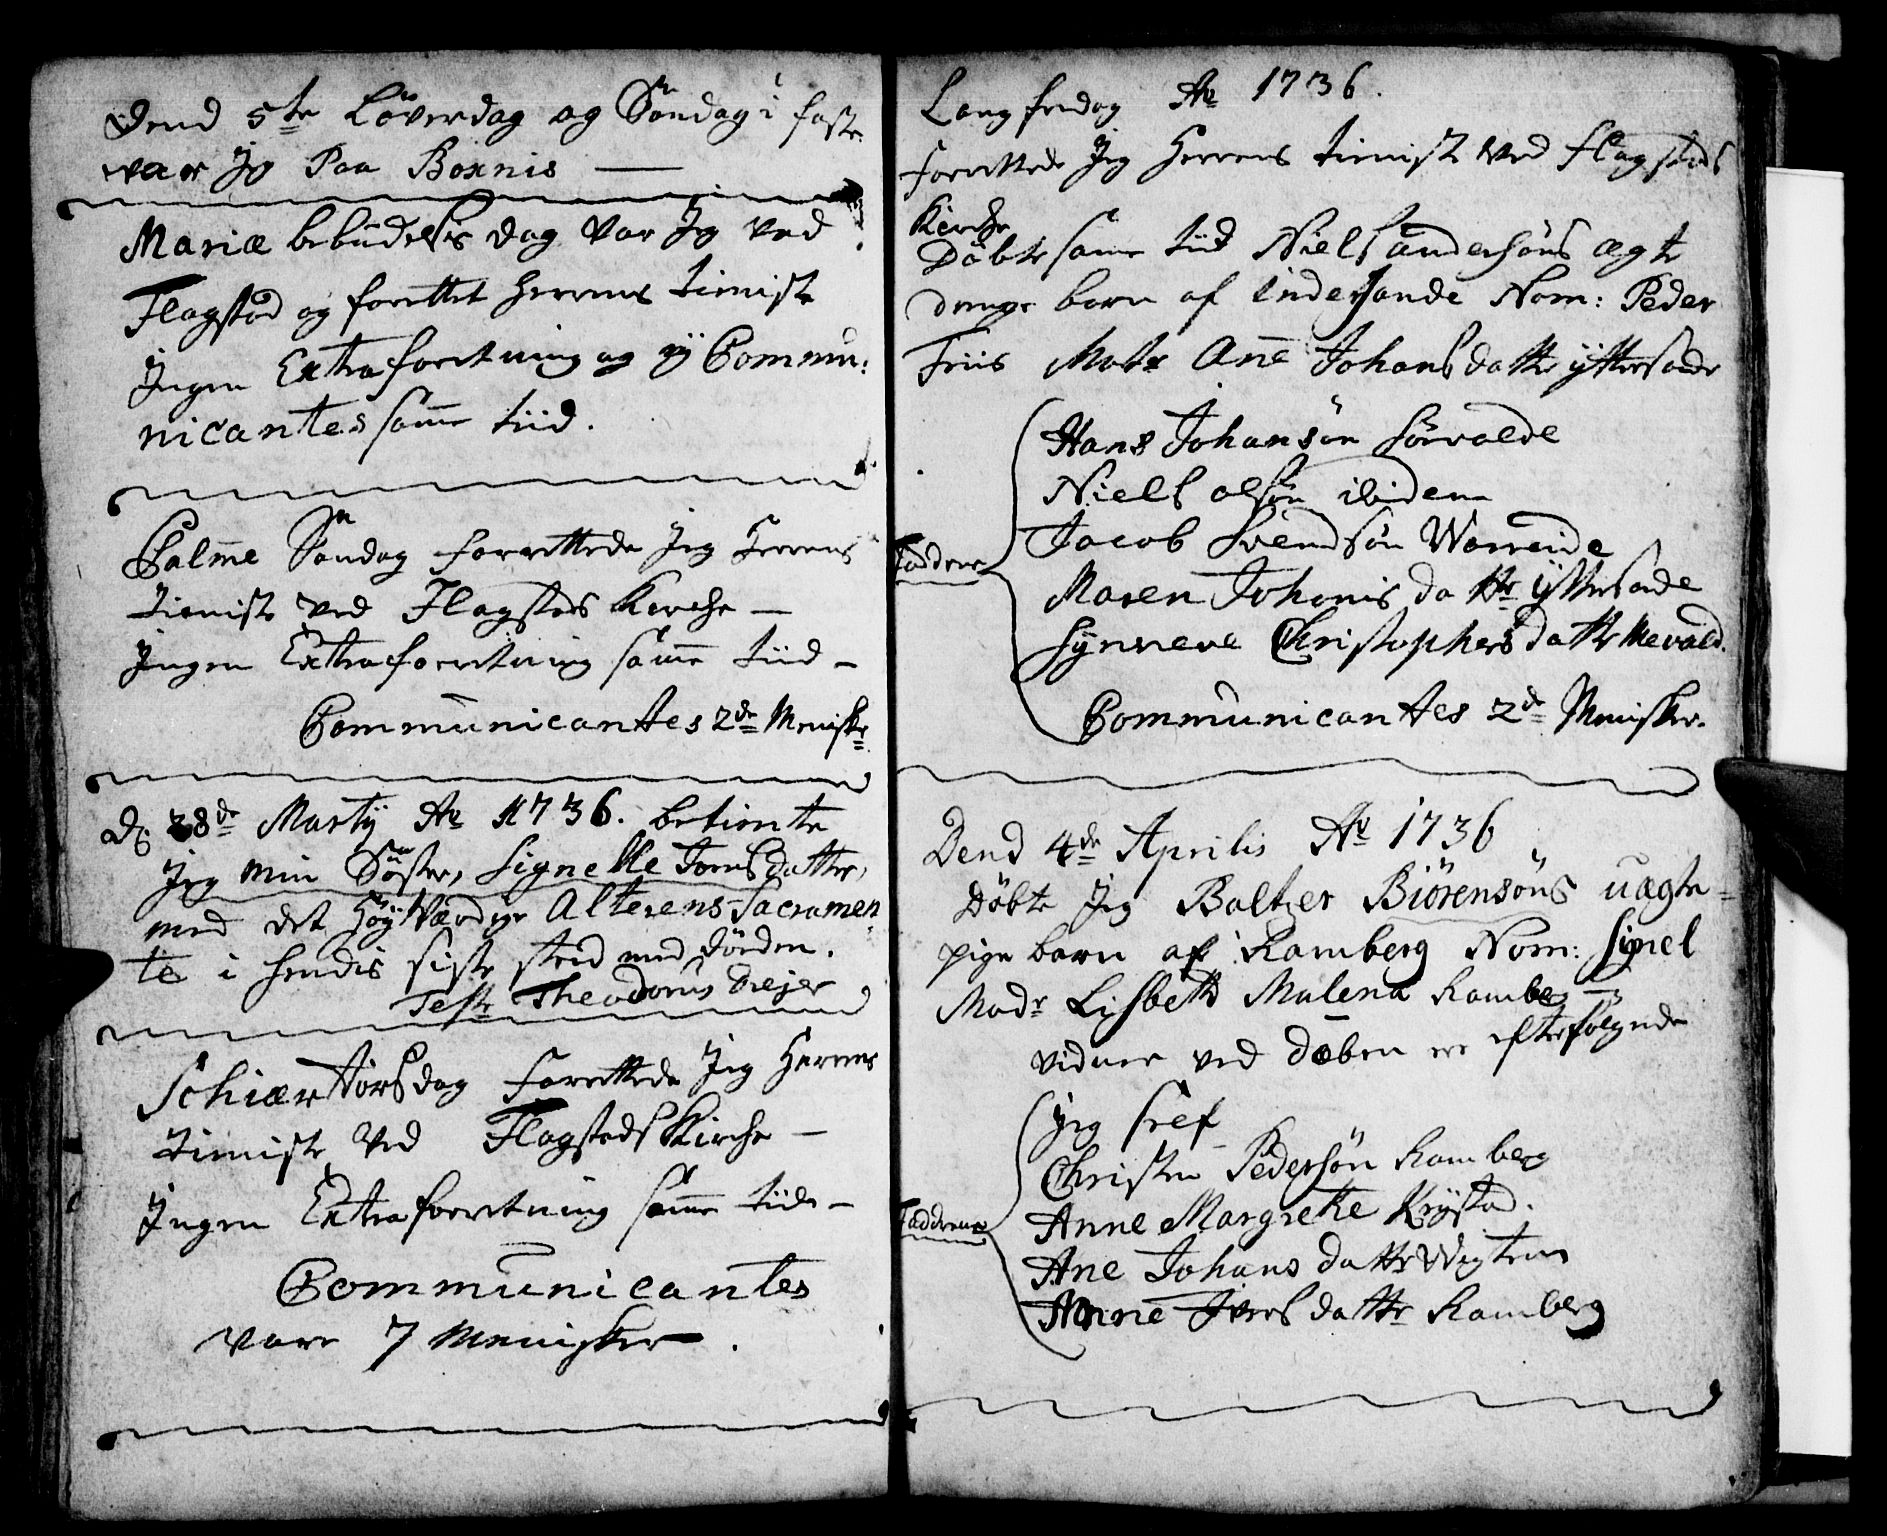 Dend 5te Löverdag og Söndag i faste
var Jeg Paa Boxnis —
Mariæ bebudelses dag var Jeg ved
Flagstad og forettet Herrens tienniste
Ingen Extra foretning og ÿ Commu:
nicantes samme tiid.
Palme Söndag forrettede Jeg Herrens
tienniste ved Flagsteds Kirche —
Ingen Extra foretning samme tiid —
Communicantes 2de Mennisker
D. 28de Martij Ao 1736. betiente
Jeg min Söster, Signelle Tomsdatter,
med det HöyVærdige Alterens Sacramen
te i hendis siste sted med döden.
Test Theodorus Drejer
Schiær torsdag forettede Jeg Herrens
tienniste ved Flagsteds Kirche —
Ingen Extra foretning samme tiid —
Communicantes
vare 7 Mennisker.
Lang fredag Ao 1736.
forrettede Jeg Herrens tienniste ved Flagsteds
Kirche
Döbte samme tiid Niels andersöns ægte
drenge barn af indersande Nom: Peder
Friis Modr Ane Johansdatter ÿttersande
Hans Johansön Sörvalde
Niels olsön ibidem
Jacob Svendsön Warreide
Faddere
Maren Johanis datter ÿttersande
Synneve Christophersdatter Nevald.
Communicantes 2de Mennisker.
Dend 4de Aprilis Ao 1736
Döbte Jeg Baltzer Biörensöns uægte
pige barn af Ramberg Nom: Signel
Modr Lisbeth Malena Ramberg —
vidner ved daben ere efterfölgende
Jeg self
Christen Pedersön Ramberg
Faddere
Anne Margrete Krÿstad.
Ane Johans datter Wigten
Anne Ivers datter Ramberg